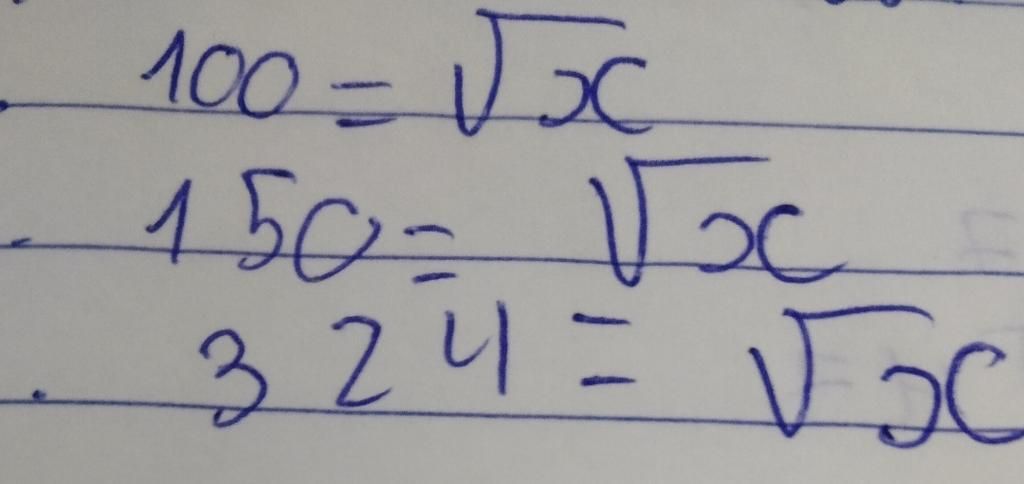 100 = √x
150 = √x
324 = √x